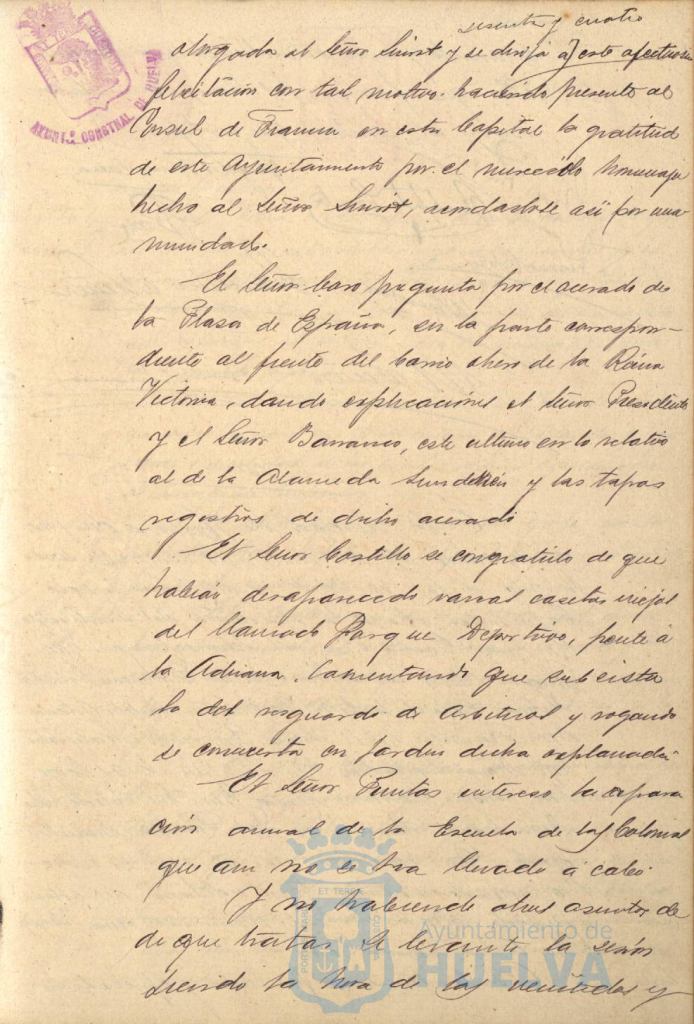 sesenta y cuatro
otorgada al Señor Siurot y se dirija á este afectuosa
felicitación con tal motivo haciendo presente al
Consul de Francia en esta Capital la gratitud
de este Ayuntamiento por el merecido homenaje
hecho al Señor Siurot, acordandose asi por una-
nimidad.
El Señor Caro pregunta por el acerado de
la Plaza de España, en la parte correspon-
diente al frente del barrio obrero de la Reina
Victoria, dando explicaciones el Señor Presidente
y el Señor Barranco, este ultimo en lo relativo
al de la Alameda Sundeheim y las tapas
registros de dicho acerado
El Señor Castillo se congratulo de que
habian desaparecido varias casetas viejas
del llamado Parque Deportivo, frente á
la Adriana, lamentando que subsista
la del resguardo de Arbitrios y rogando
se convierta en Jardin dicha explanada
El Señor Puntas intereso la repara
ción anual de la Escuela de las Colonias
que aun no se ha llevado á cabo
Y no habiendo otros asuntos de
de que tratar se levanto la sesión
siendo la hora de las veintidos y
AYUNT.º CONSTNAL DE HUELVA
Ayuntamiento de
HUELVA